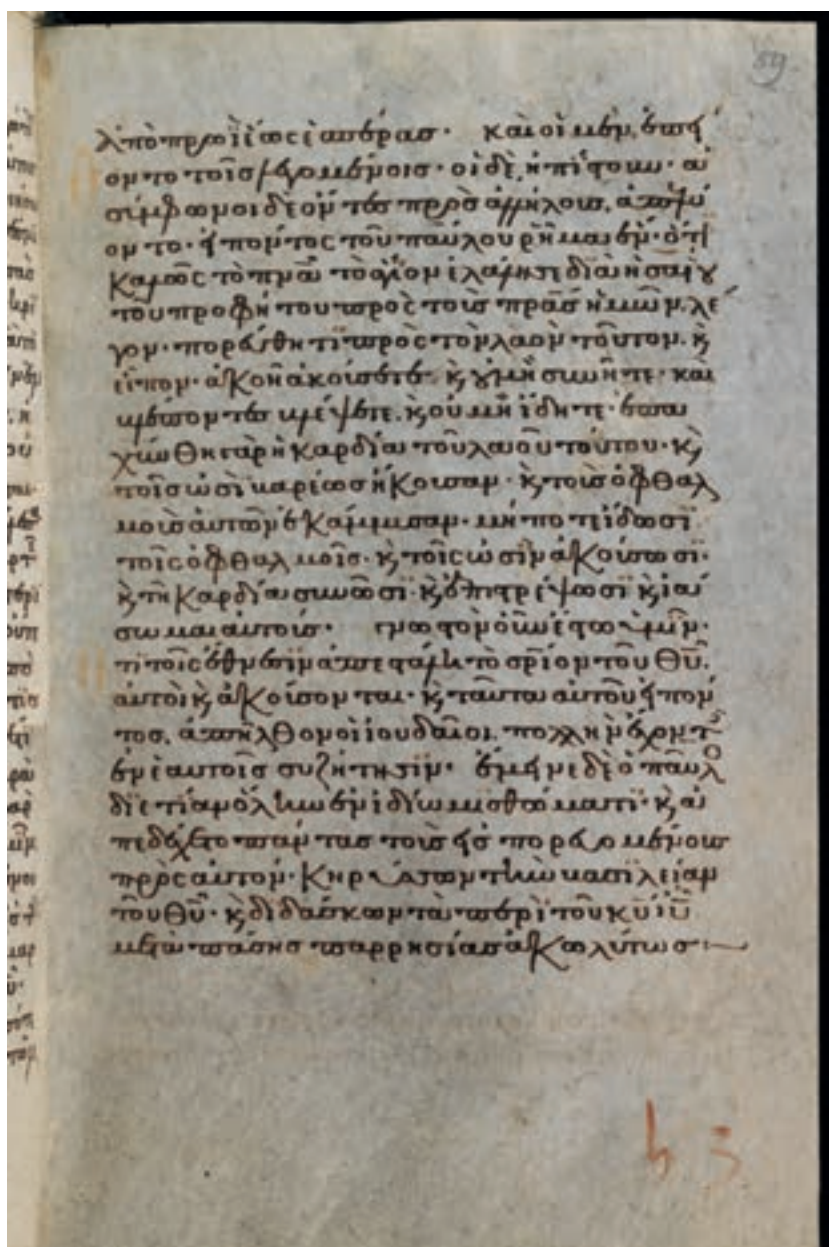 ἀπὸ πρωῒ ἕως ἑσπέρας· καὶ οἱ μὲν, ἐπεί
θοντο τοῖς λεγομένοις· οἱ δὲ, ἠπίστουν· ἀ
σύμφωνοι δὲ ὄντες πρὸς ἀλλήλους, ἀπελύ
οντο· εἰπόντος τοῦ παύλου ῥῆμα ἕν· ὅτι
καλῶς τὸ πνᾶ τὸ ἅγιον ἐλάλησε διὰ ἡσαΐου
τοῦ προφήτου πρὸς τοὺς πρᾶς ἡμῶν, λέ
γον· πορεύθητι πρὸς τὸν λαὸν τοῦτον, ϗ
εἶπον· ἀκοῆ ἀκούσετε· ϗ οὐ μὴ συνῆτε· καὶ
βλέποντες βλέψετε, ϗ οὐ μὴ ἴδητε· ἐπα
χύνθη γὰρ ἡ καρδία τοῦ λαοῦ τούτου· ϗ
τοῖς ὠσὶ βαρέως ἤκουσαν· ϗ τοὺς ὀφθαλ
μοὺς αὐτῶν ἐκάμμυσαν· μή ποτε ἴδωσϊ
τοῖς ὀφθαλμοῖς· ϗ τοῖς ὠσὶν ἀκούσωσϊ·
ϗ τῆ καρδία συνῶσϊ· ϗ ἐπιστρέψωσϊ ϗ ἰά
σωμαι αὐτούς· γνωστὸν οὖν ἔστω ὑμῖν·
τι τοῖς ἔθνεσϊν ἀπεστάλη τὸ σρῖον τοῦ θῦ,
αὐτοὶ ϗ ἀκούσονται· ϗ ταῦτα αὐτοῦ εἰπόν
τος, ἀπῆλθον οἱ ἰουδαῖοι, πολλὴν ἔχοντ
ἐν ἑαυτοῖς συζήτησϊν· ἔμεινε δὲ ὁ παῦλο
διετίαν ὅλην ἐν ἰδίω μισθώματϊ· ϗ ἀ
πεδέχετο πάντας τοὺς εἰσπορευομένους
πρὸς αὐτόν· κηρύσσων τὴν βασϊλείαν
τοῦ θῦ· ϗ διδάσκων τὰ περὶ τοῦ κῦ ἰῦ
μετὰ πάσης παρρησίας ἀκωλύτως: